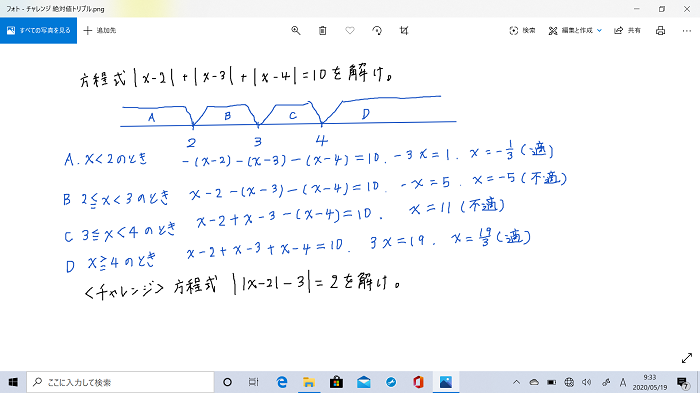 フォト - チャレンジ 絶対値トリプル.png
すべての写真を見る + 追加先 検索 編集と作成 共有
方程式 |x-2| + |x-3| + |x-4| = 10 を解け。
A B C D
2 3 4
A. x<2のとき -(x-2)-(x-3)-(x-4)=10. -3x=1. x=-1/3 (適)
B 2≦x<3のとき x-2-(x-3)-(x-4)=10. -x=5. x=-5 (不適)
C 3≦x<4のとき x-2+x-3-(x-4)=10. x=11 (不適)
D x≧4のとき x-2+x-3+x-4=10. 3x=19. x=19/3 (適)
<チャレンジ> 方程式 ||x-2|-3|=2 を解け。
ここに入力して検索 A 9:33
2020/05/19